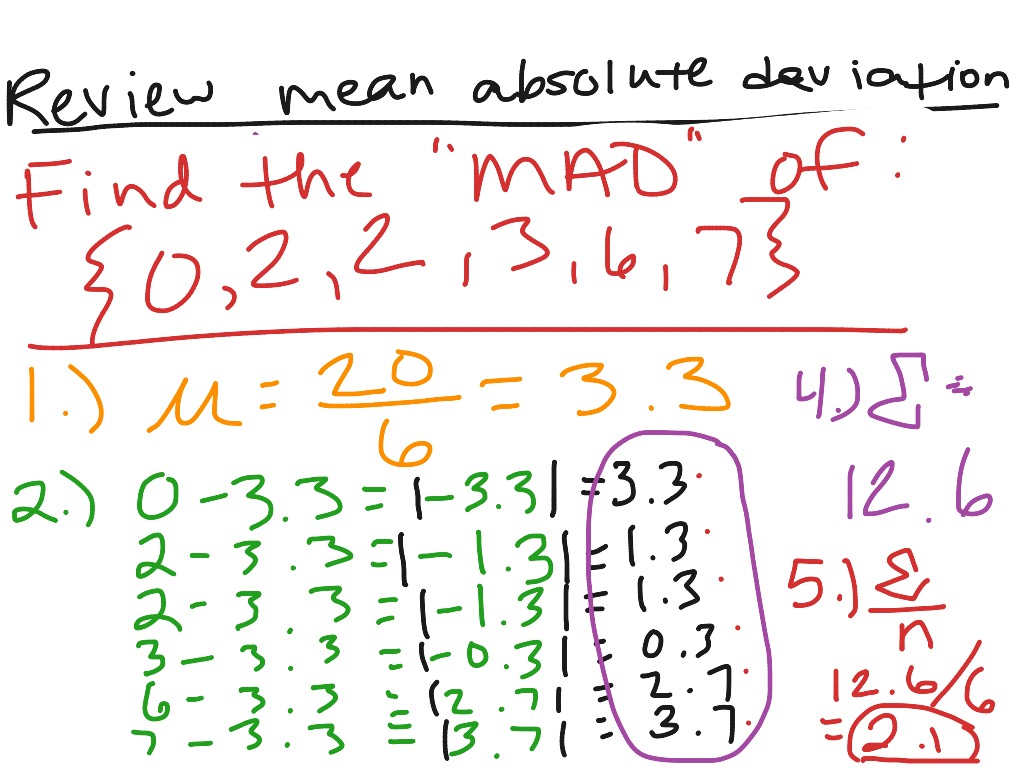 Review mean absolute deviation
Find the "MAD" of:
{0,2,2,3,6,7}
1.) μ = 20/6 = 3.3
2.) 0 - 3.3 = |-3.3| = 3.3
2 - 3.3 = |-1.3| = 1.3
2 - 3.3 = |-1.3| = 1.3
3 - 3.3 = |-0.3| = 0.3
6 - 3.3 = |2.7| = 2.7
7 - 3.3 = |3.7| = 3.7
4.) Σ =
12.6
5.) Σ/n
12.6/6
= 2.1